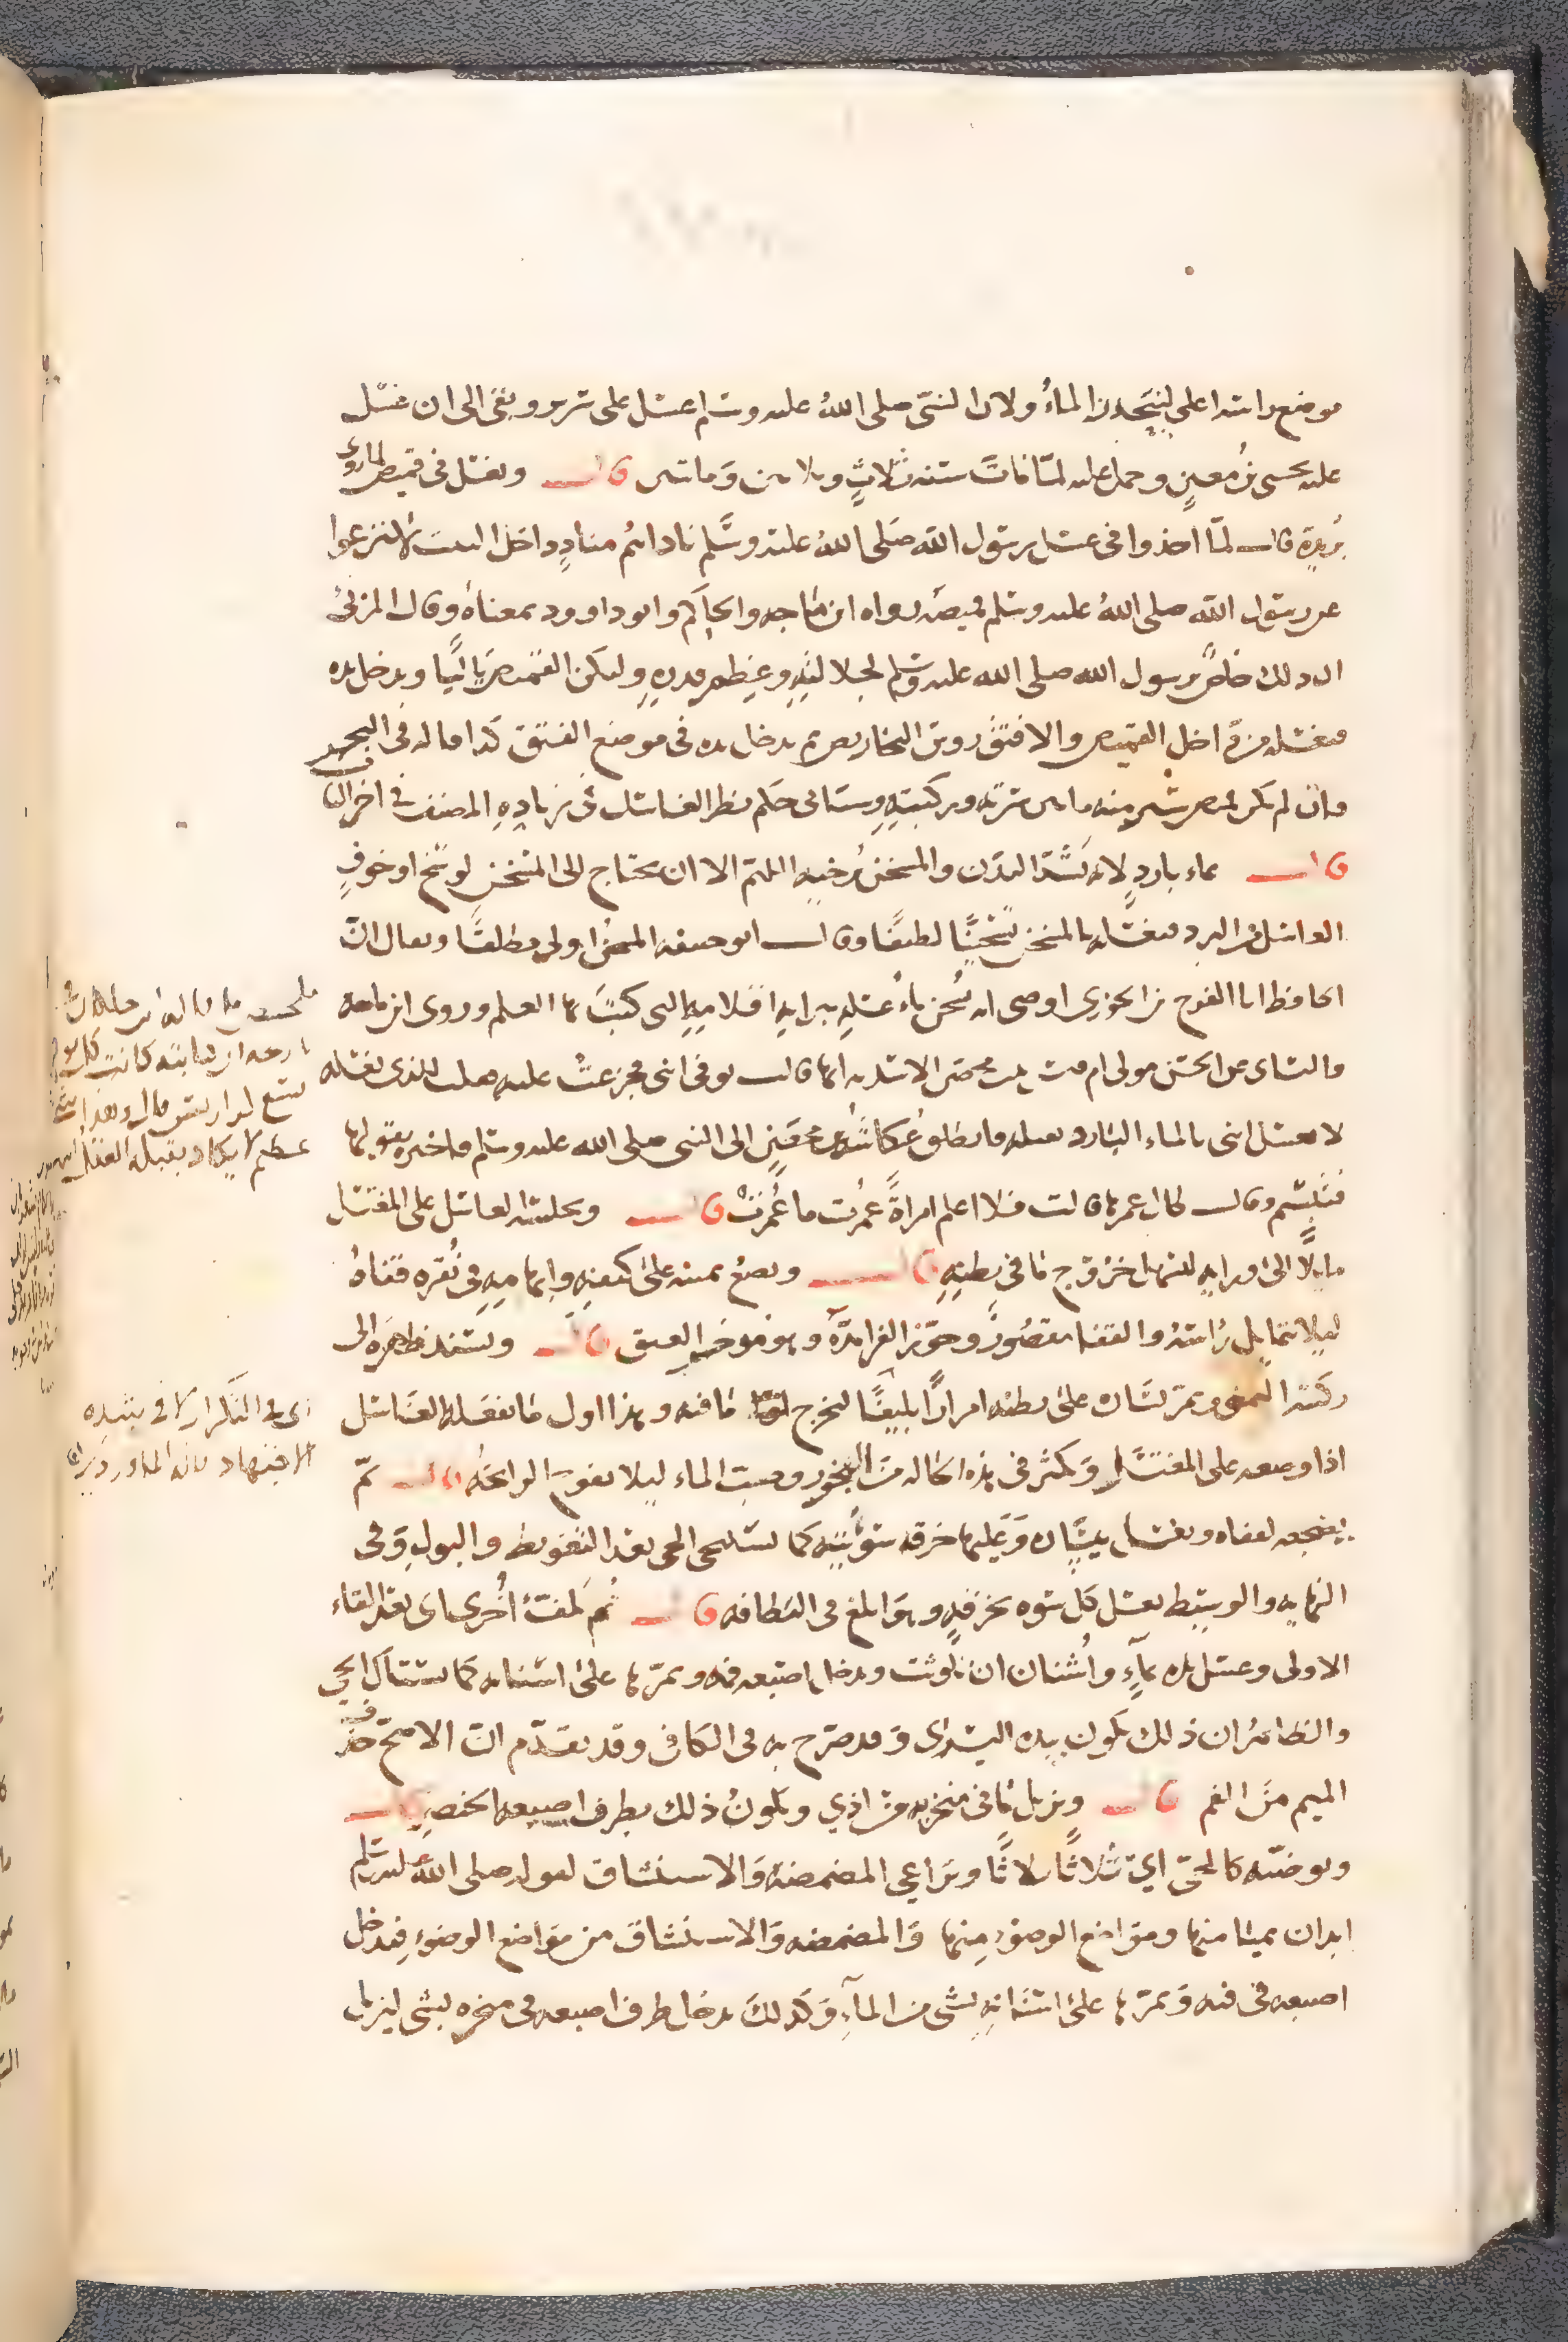 موضع راسه اعلى لينحدر الماء ولان النبي صلى الله عليه وسلم غسل على سرير وبقي الى ان غسل
عليه يحيى بن معين وحمل عليه لما مات سنة ثلاث وثلاثين ومائتين قال ويغسل في قميص لما روى
بريدة قال لما اخذوا في غسل رسول الله صلى الله عليه وسلم ناداهم مناد من داخل البيت لا تنزعوا
عن رسول الله صلى الله عليه وسلم قميصه رواه ابن ماجه والحاكم وابو داود بمعناه وقال المزني
ان ذلك خاص برسول الله صلى الله عليه وسلم لجلالته وعظم قدره وليكن القميص باليا ويدخل يده
فيغسله من داخل القميص والا فتق روس التخاريص ثم يدخل يده في موضع الفتق كذا قاله في البحر
فان لم يكن قميص ستر منه ما بين سرته وركبته وسياتي حكم نظر الغاسل في زيادة المصنف في اخر الباب
قال بماء بارد لانه يشد البدن والمسخن يرخيه اللهم الا ان يحتاج الى المسخن لوسخ او خوف
الغاسل من البرد فيغسله بالمسخن تسخينا لطيفا وقال ابو حنيفة المسخن اولى مطلقا ويقال ان
الحافظ ابا الفرج بن الجوزي اوصى ان يسخن ماء غسله ببراية اقلامه التي كتب بها العلم وروى ابن ماجه
والنسائي عن ابي الحسن مولى ام قيس بنت محصن الاسدية انها قالت توفي ابني فجزعت عليه فقلت للذي يغسله
لا تغسل ابني بالماء البارد فتقتله فانطلق عكاشة بن محصن الى النبي صلى الله عليه وسلم فاخبره بقولها
فتبسم وقال طال عمرها قالت فلا اعلم امراة عمرت ما عمرت قال ويجلسه الغاسل على المغتسل
مايلا الى ورايه ليسهل خروج ما في بطنه قال ويضع يمينه على كتفه وابهامه في نقرة قفاه
ليلا تتمايل راسه والقفا مقصور وجوز الفرا مده وهو موخر العنق قال ويسند ظهره الى
ركبته اليمنى ويمر يساره على بطنه امرارا بليغا ليخرج ما فيه وهذا اول ما يفعله الغاسل
اذا وضعه على المغتسل ويكثر في هذه الحالة من البخور وصب الماء ليلا تفوح الرايحة قال ثم
يضجعه لقفاه ويغسل بيساره وعليها خرقة سوأتيه كما يستنجي الحي بعد التغوط والبول وفي
النهاية والوسيط يغسل كل سوءة بخرقة وهو ابلغ في النظافة قال ثم يلف اخرى اي بعد القاء
الاولى وغسل يده بماء واشنان ان تلوثت ويدخل اصبعه فمه ويمرها على اسنانه كما يستاك الحي
والظاهر ان ذلك يكون بيده اليسرى وقد صرح به في الكافي وقد تقدم ان الاصح حذف
الميم من الفم قال ويزيل ما في منخريه من اذى ويكون ذلك بطرف اصبعه الخنصر قال
ويوضئه كالحي اي ثلاثا ثلاثا ويراعي المضمضة والاستنشاق لقوله صلى الله عليه وسلم
ابدان بميامنها ومواضع الوضوء منها والمضمضة والاستنشاق من مواضع الوضوء فيدخل
اصبعه في فيه ويمرها على اسنانه بشي من الماء وكذلك يدخل طرف اصبعه في منخره بشي ليزيل
كانت كل يوم
عظيم لا يكاد يقبله العقل
اي في التكرار لا في